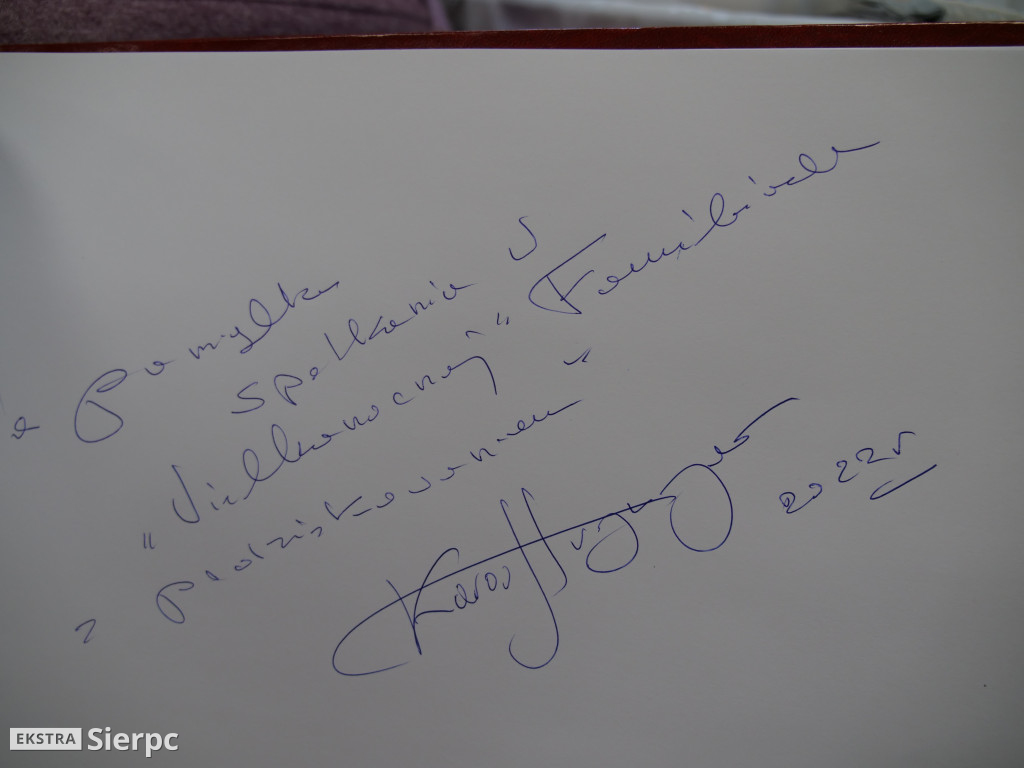 a pamiątkę
spotkania w
"Wielkanocnej" Familiadzie
z podziękowaniem
Karol Strasburger 2022r
EKSTRA Sierpc